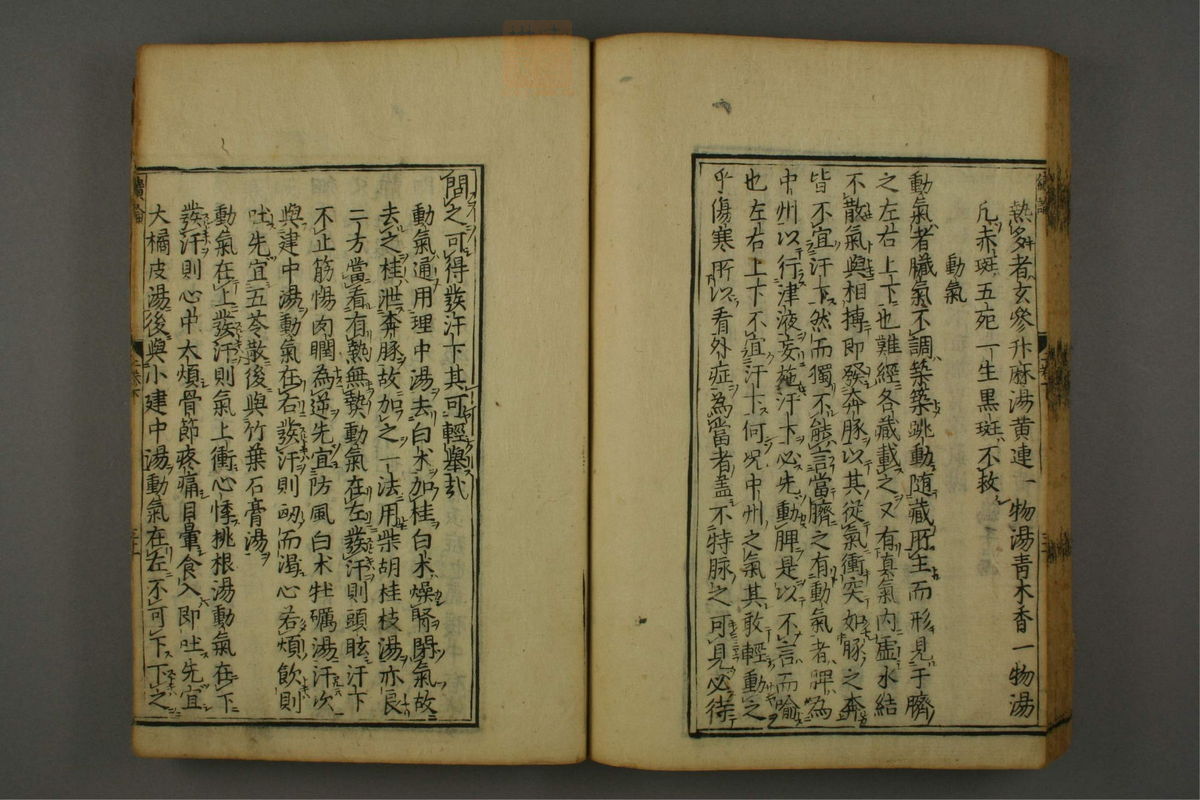 熱多者玄參升麻湯黄連一物湯青木香一物湯
凡赤斑五死一生黒斑不救
動氣
動氣者臓氣不調築築跳動随藏所主而形見于臍
之左右上下也難經各藏載之又有真氣内虚水結
不散氣與相摶即發奔豚以其從氣衝突如豚之奔
皆不宜汗下然而獨不能言當臍之有動氣者脾為
中州以行津液妄施汗下必先動脾是以不言而喻
也左右上下不宜汗下何况中州之氣其敢輕動之
乎傷寒所以看外症為當者盖不特脉之可見必待
問之可得發汗下其可輕舉哉
動氣通用理中湯去白术加桂白术燥腎閉氣故
去之桂泄奔豚故加之一法用柴胡桂枝湯亦良
二方當看有熱無熱動氣在左發汗則頭眩汗下
不止筋惕肉瞤為逆先宜防風白术牡礪湯汗次
與建中湯動氣在右發汗則衂而渇心若煩飲則
吐先宜五苓散後與竹葉石膏湯
動氣在上發汗則氣上衝心悸挑根湯動氣在下
發汗則心中大煩骨節疼痛目暈食入即吐先宜
大橘皮湯後與小建中湯動氣在左不可下下之